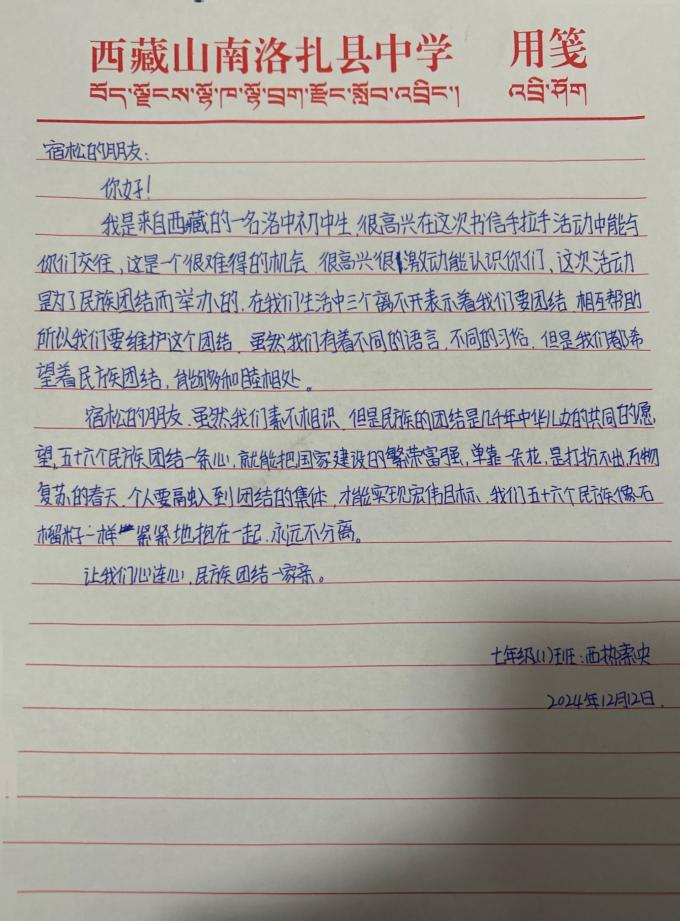 西藏山南洛扎县中学 用笺
བོད་ལྗོངས་ལྷོ་ཁ་ལྷོ་བྲག་རྫོང་སློབ་འབྲིང་། འབྲི་ཤོག
宿松的朋友：
你好！
我是来自西藏的一名洛中初中生，很高兴在这次书信手拉手活动中能与
你们交往，这是一个很难得的机会，很高兴很激动能认识你们，这次活动
是为了民族团结而举办的，在我们生活中三个离不开表示着我们要团结，相互帮助
所以我们要维护这个团结，虽然我们有着不同的语言，不同的习俗，但是我们都希
望着民族团结，能够和睦相处。
宿松的朋友，虽然我们素不相识，但是民族的团结是几千年中华儿女的共同的愿
望，五十六个民族团结一条心，就能把国家建设的繁荣富强，单靠一朵花，是打扮不出万物
复苏的春天，个人要融入到团结的集体，才能实现宏伟目标，我们五十六个民族像石
榴籽一样紧紧地抱在一起，永远不分离。
让我们心连心，民族团结一家亲。
七年级(1)班：西热索央
2024年12月12日.